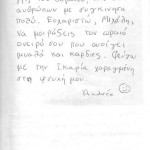 ανθρώπων με συγκίνησε
πολύ. Ευχαριστώ, Μιχάλη,
να μοιράζεις τον ωραίο
όνειρό σου που ανοίγει
μυαλά και καρδιές. Φεύγω
με την Ικαρία χαραγμένη
στη ψυχή μου.